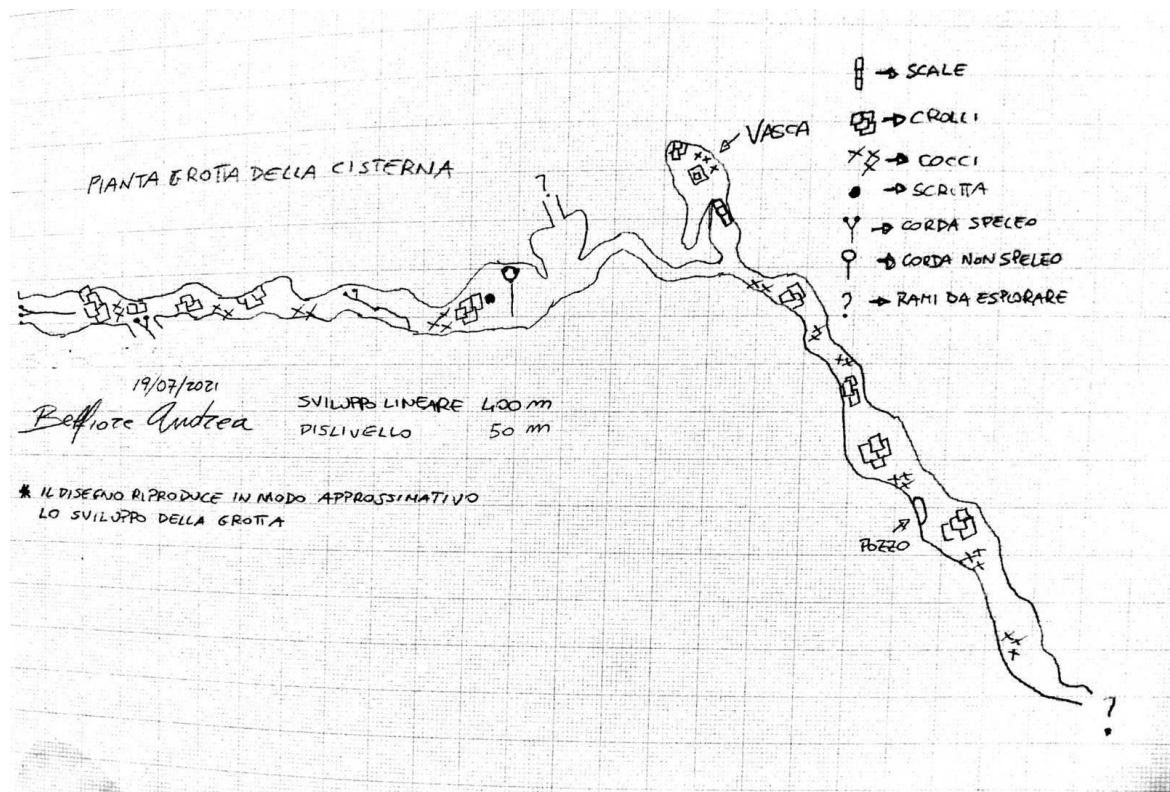 PIANTA GROTTA DELLA CISTERNA
?
VASCA
→ SCALE
→ CROLLI
→ COCCI
→ SCRITTA
→ CORDA SPELEO
→ CORDA NON SPELEO
? → RAMI DA ESPLORARE
19/07/2021
Belfiore Andrea
SVILUPPO LINEARE 400 m
DISLIVELLO 50 m
* IL DISEGNO RIPRODUCE IN MODO APPROSSIMATIVO
LO SVILUPPO DELLA GROTTA
POZZO
?